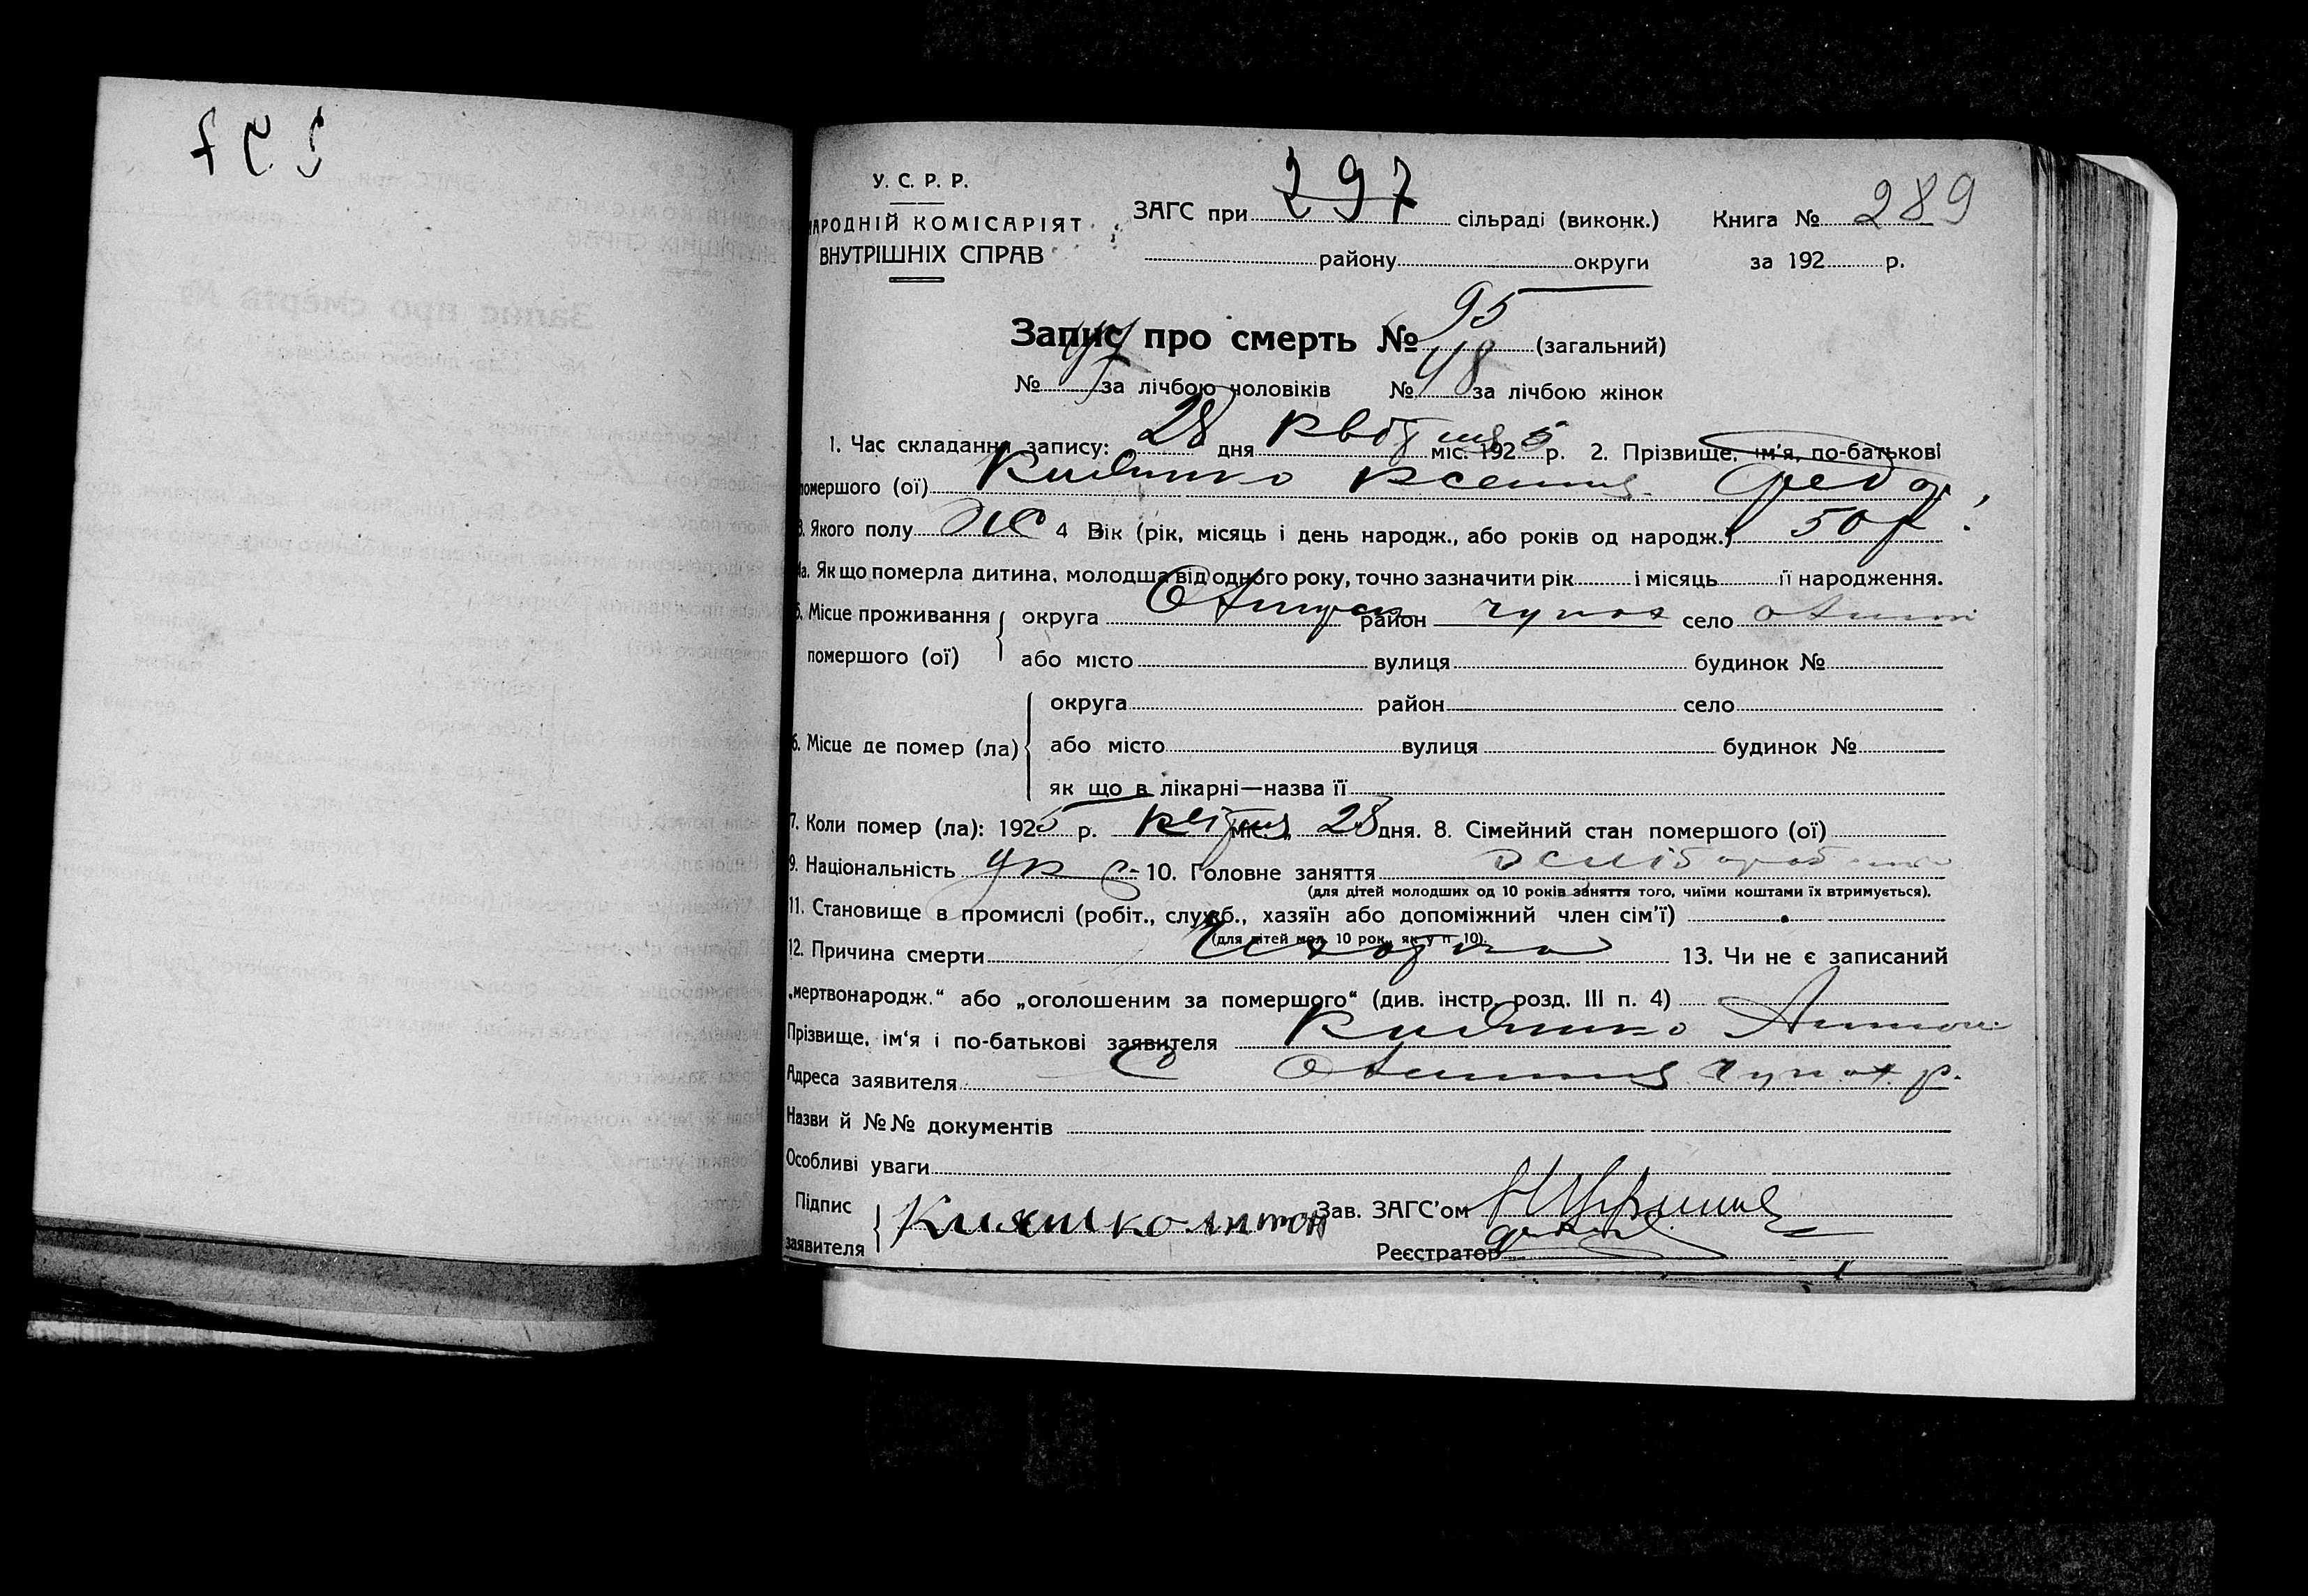 257
У. С. Р. Р.
НАРОДНІЙ КОМІСАРІЯТ
ВНУТРІШНІХ СПРАВ
ЗАГС при 297 сільраді (виконк.) Книга № 289
району округи за 192 р.
Запис про смерть № 95 (загальний)
№ 47 за лічбою чоловіків № 48 за лічбою жінок
1. Час складання запису: 28 дня квітня міс. 1925 р. 2. Прізвище, ім'я, по-батькові
помершого (ої) Кияшко Ксения Федор
3. Якого полу ж 4 Вік (рік, місяць і день народж., або років од народж.) 50 р.
4а. Як що померла дитина, молодща від одного року, точно зазначити рік і місяць її народження.
5. Місце проживання округа район село
помершого (ої) або місто вулиця будинок №
округа район село
6. Місце де помер (ла) або місто вулиця будинок №
як що в лікарні—назва її
7. Коли помер (ла): 1925 р. квітня міс. 28 дня. 8. Сімейний стан помершого (ої)
9. Національність Укр 10. Головне заняття
(для дітей молодших од 10 років заняття того, чиїми коштами їх втримується).
11. Становище в промислі (робіт., служб., хазяїн або допоміжний член сім'ї)
(для дітей мол. 10 рок., як у п 10).
12. Причина смерти 13. Чи не є записаний
„мертвонародж.“ або „оголошеним за помершого“ (див. інстр. розд. III п. 4)
Прізвище, ім'я і по-батькові заявителя Кияшко Антон
Адреса заявителя С
Назви й №№ документів
Особливі уваги
Підпис Кияшко Антон Зав. ЗАГС'ом
заявителя Реєстратор